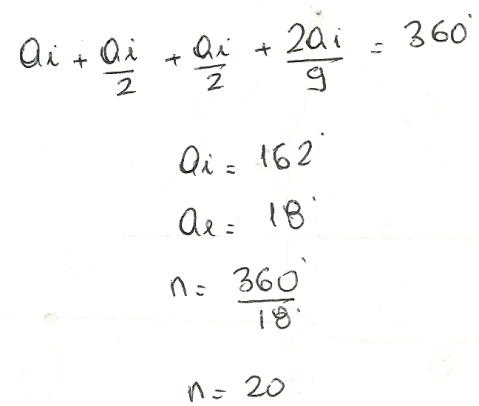 ai + ai/2 + ai/2 + 2ai/9 = 360°
ai = 162°
ae = 18°
n = 360°/18°
n = 20